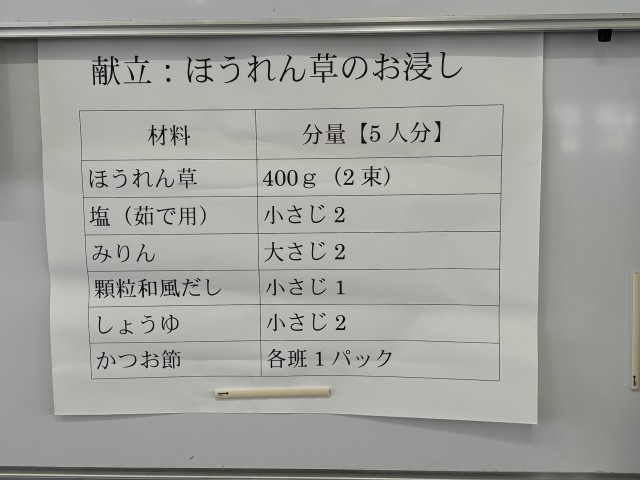 献立：ほうれん草のお浸し
材料 分量【5人分】
ほうれん草 400g（2束）
塩（茹で用） 小さじ2
みりん 大さじ2
顆粒和風だし 小さじ1
しょうゆ 小さじ2
かつお節 各班1パック